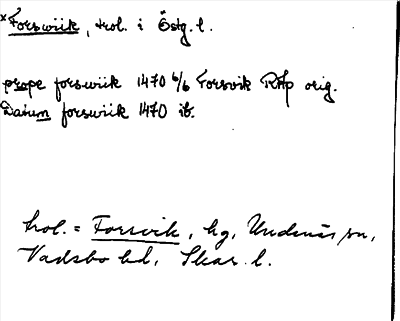 ×Forswiik, trol. i Östg. l.
prope forswiik 1470 6/6 Forsvik RAp orig.
Datum forswiik 1470 ib.
trol. = Forsvik, hg, Undenäs sn,
Vadsbo hd, Skar. l.